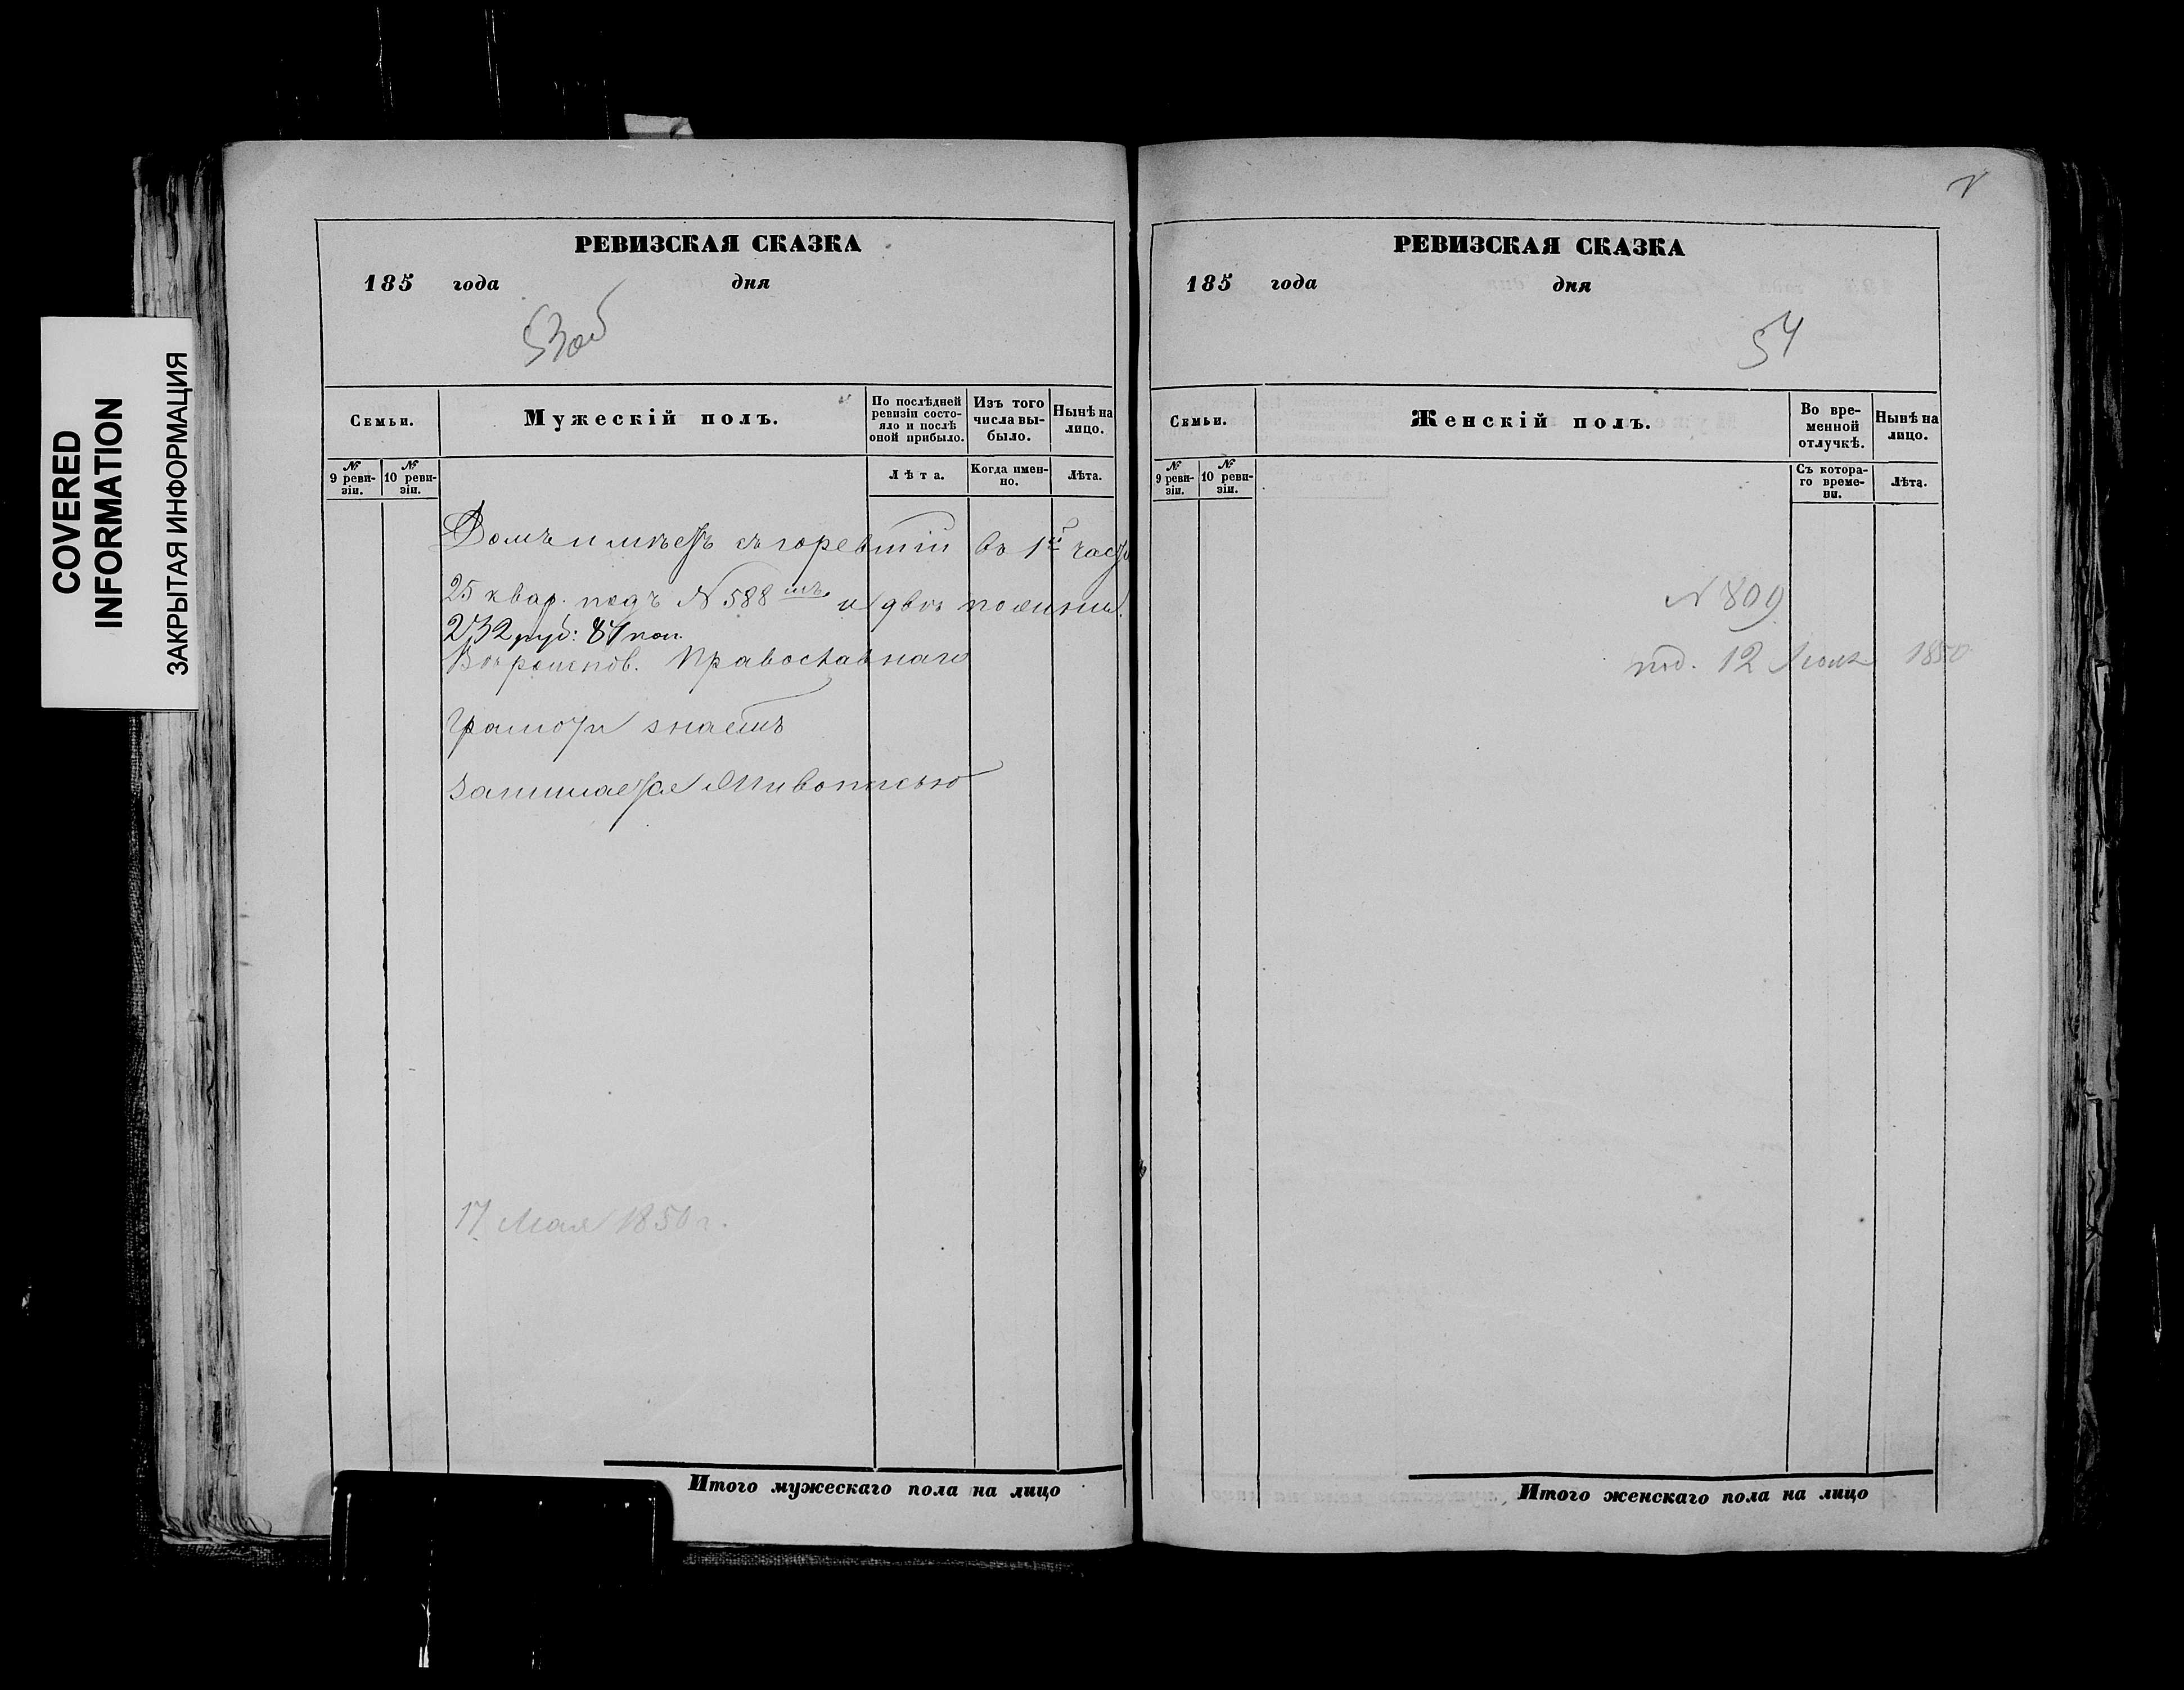 COVERED
INFORMATION
ЗАКРЫТАЯ ИНФОРМАЦИЯ
РЕВИЗСКАЯ СКАЗКА
185 года дня
53об
Семьи.
Мужескій полъ.
По послѣдней ревизіи состо-
яло и послѣ
оной прибыло.
Изъ того
числа вы-
было.
Нынѣ на
лицо.
№
9 реви-
зіи.
№
10 реви-
зіи.
Лѣта.
Когда имен-
но.
Лѣта.
Домъ имѣетъ съгоревшій въ 1й част
25 квар. подъ N 588 мъ и
232 руб: 87 коп.
Православнаго
Грамоти знаетъ
занимается Живописью
17 Мая 1850 г.
Итого мужескаго пола на лицо
РЕВИЗСКАЯ СКАЗКА
185 года дня
54
Семьи.
Женскій полъ.
Во вре-
менной
отлучкѣ.
Нынѣ на
лицо.
№
9 реви-
зіи.
№
10 реви-
зіи.
Съ котора-
го време-
ни.
Лѣта.
N 809
под. 12 1850
Итого женскаго пола на лицо